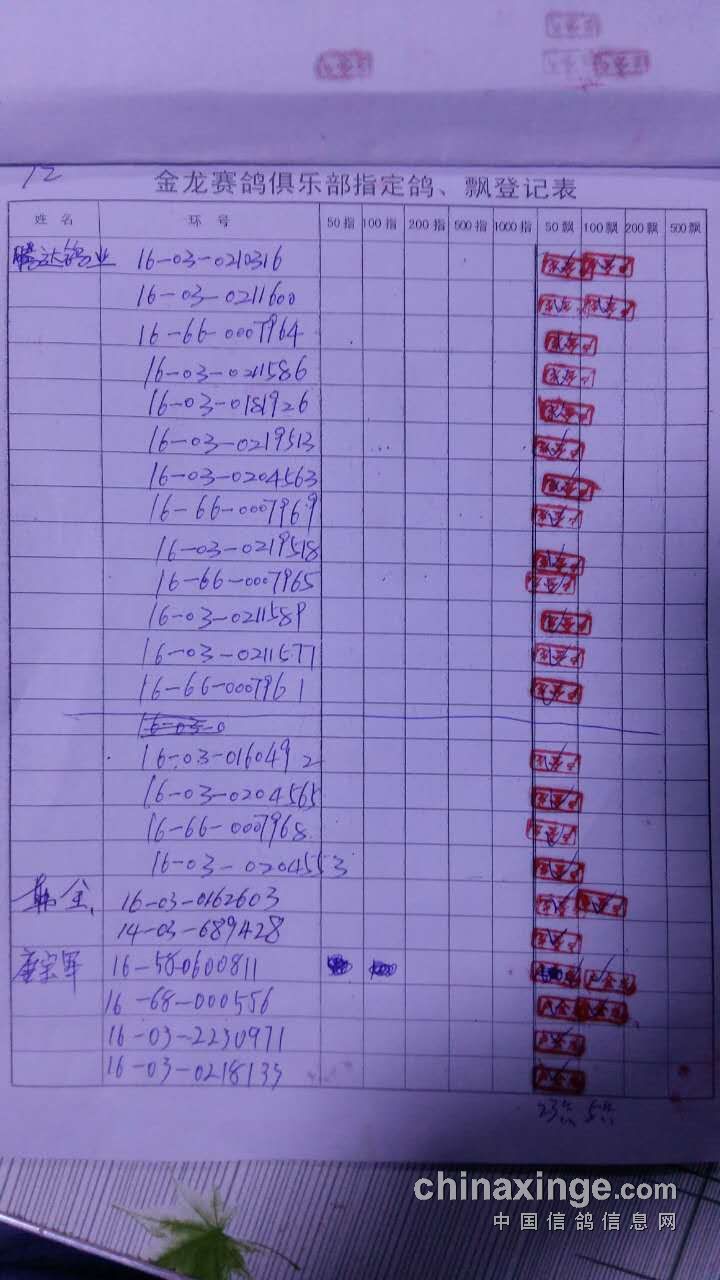 12
金龙赛鸽俱乐部指定鸽、飘登记表
姓 名 环 号 50指 100指 200指 500指 1000指 50飘 100飘 200飘 500飘
腾达鸽业 16-03-0210316
16-03-0211600
16-66-0007964
16-03-0211586
16-03-0181926
16-03-0219513
16-03-0204563
16-66-0007969
16-03-0219518
16-66-0007965
16-03-0211589
16-03-0211577
16-66-0007961
16-03-0
16-03-0160492
16-03-0204565
16-66-0007968
16-03-0204553
韩金 16-03-0162603
14-03-689428
16-50-0600811
16-68-000556
16-03-2230971
16-03-0218135
chinaxinge.com
中国信鸽信息网